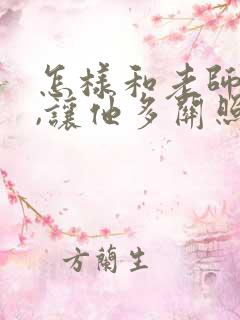 怎樣和老師
,讓他多關照
方蘭生